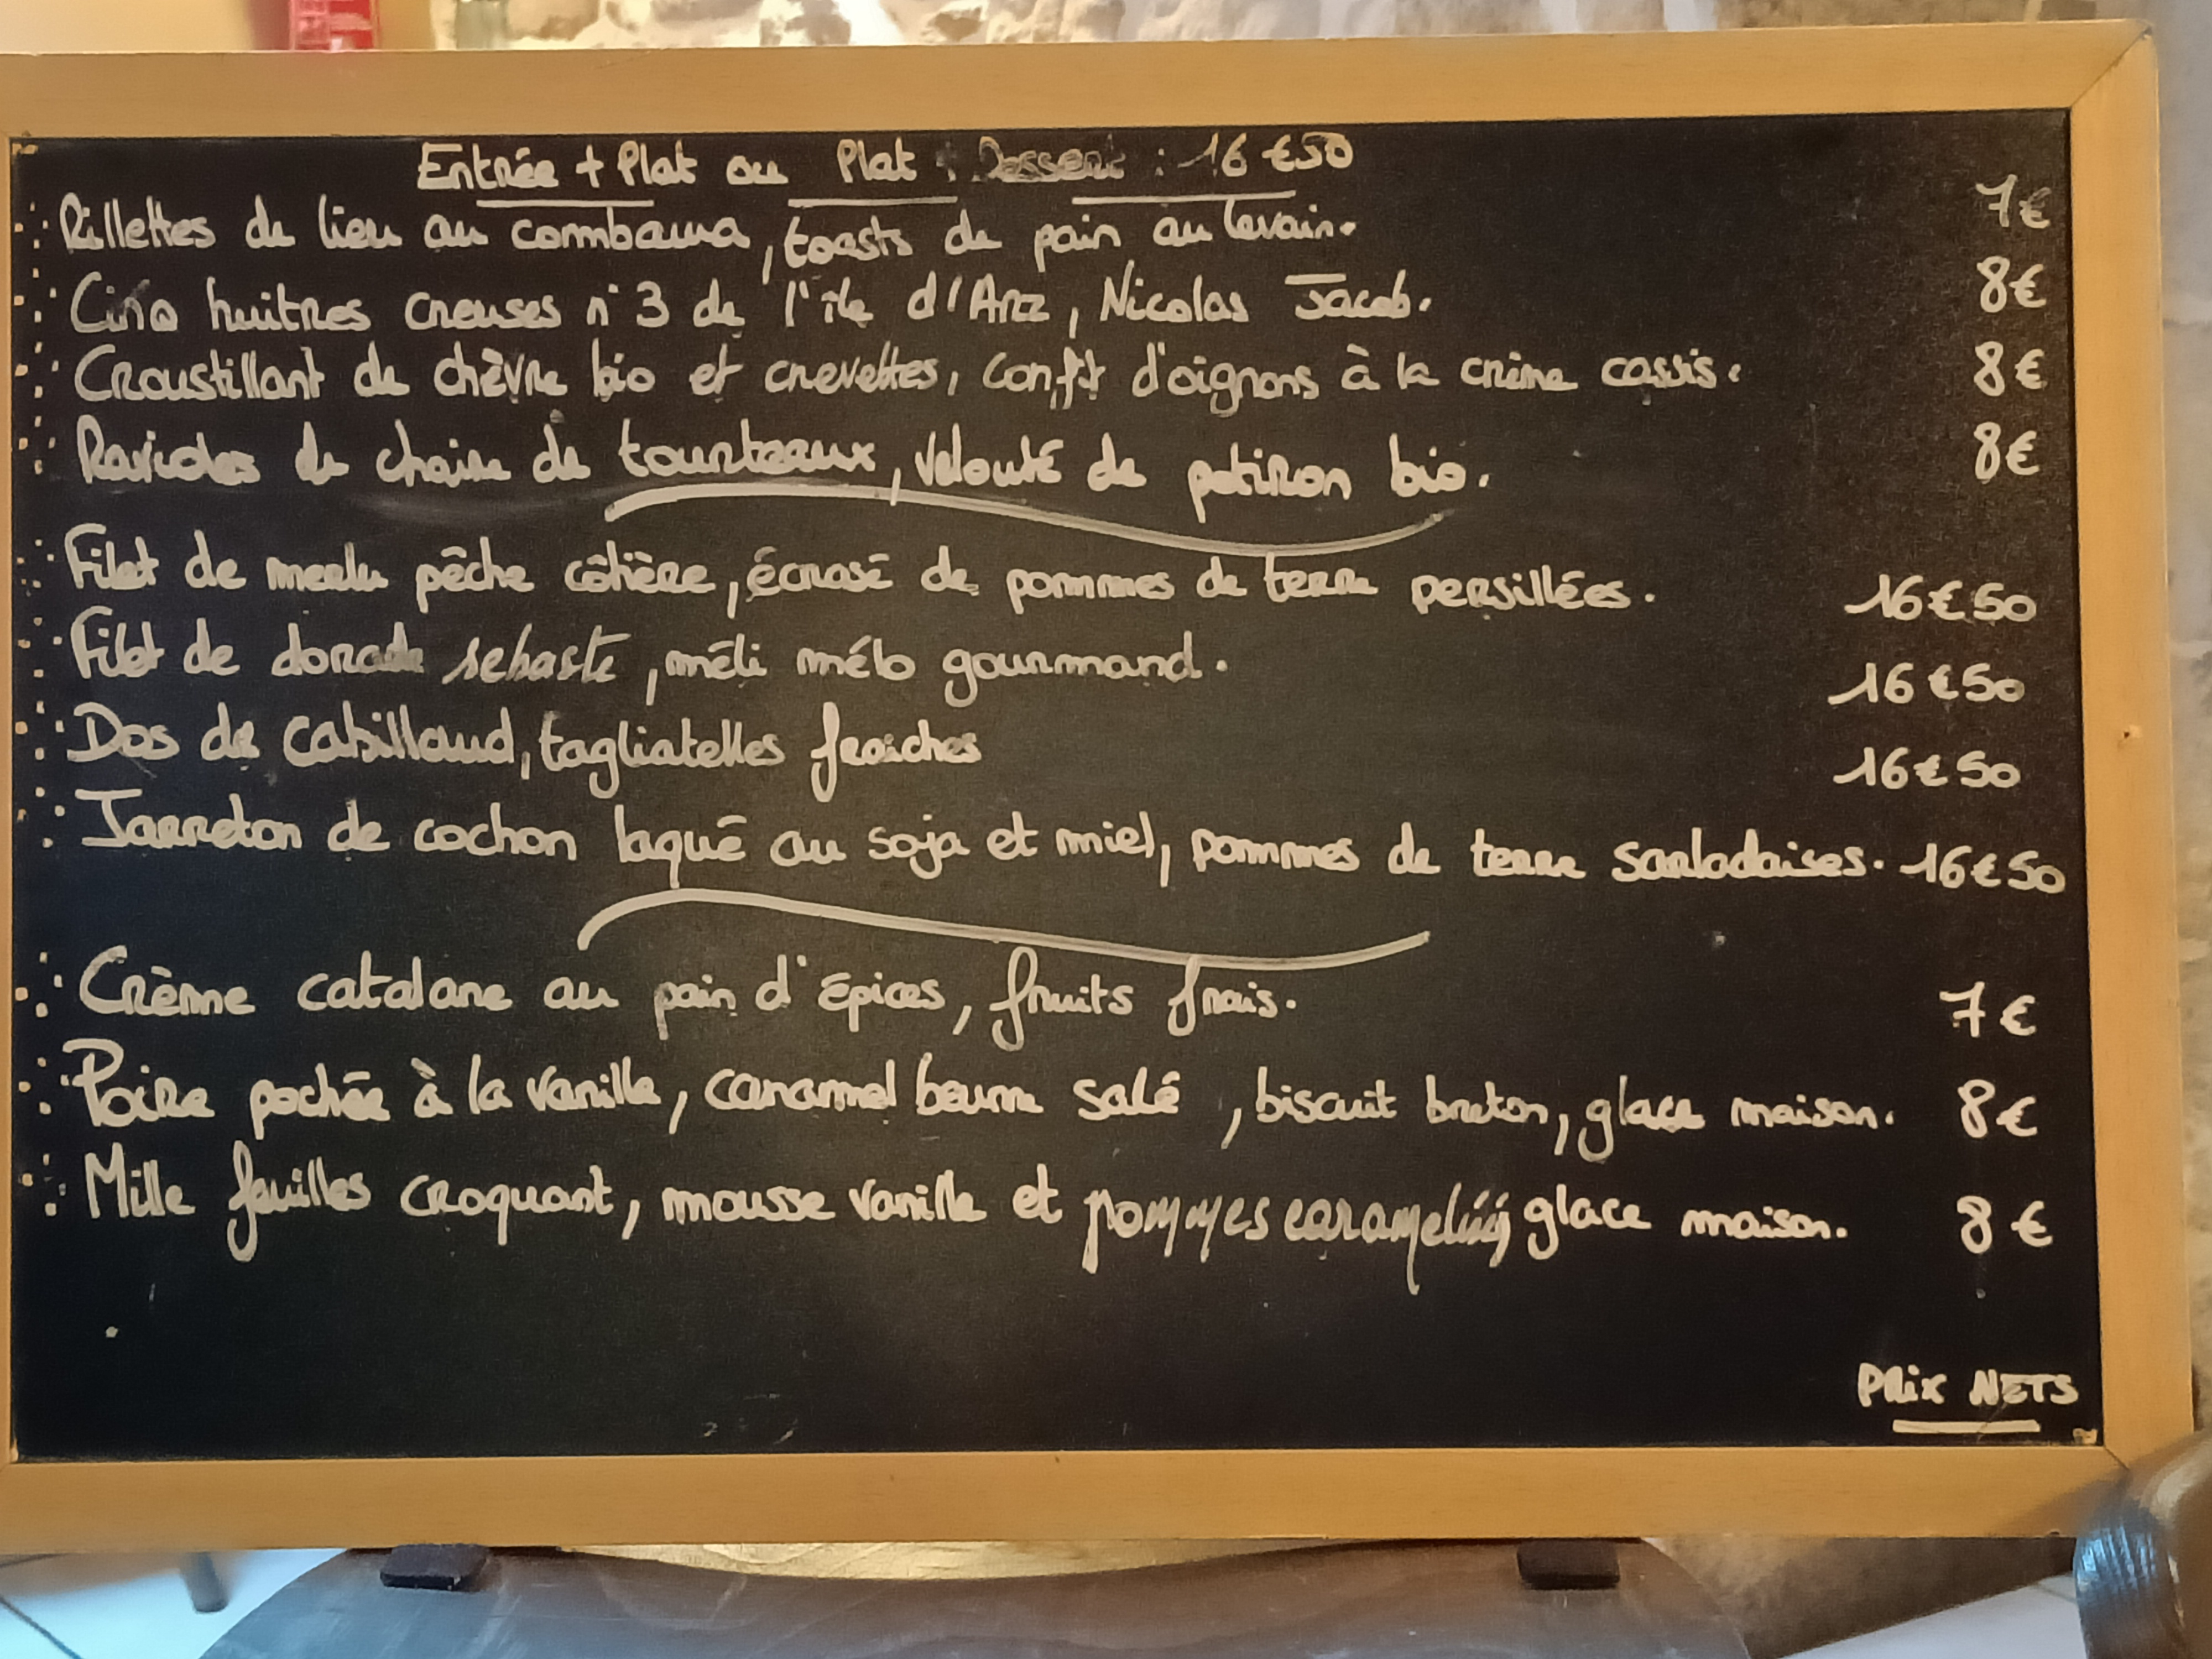 Entrée + Plat ou Plat + Dessert : 16€50
Rillettes de lieu au combawa, toasts de pain au levain. 7€
Cinq huitres creuses n°3 de l'île d'Arz, Nicolas Jacob. 8€
Croustillant de chèvre bio et crevettes, confit d'oignons à la crème cassis. 8€
Ravioles de chair de tourteaux, velouté de potiron bio. 8€
Filet de merlu pêche côtière, écrasé de pommes de terre persillées. 16€50
Filet de dorade sebaste, méli mélo gourmand. 16€50
Dos de cabillaud, tagliatelles fraiches 16€50
Jarreton de cochon laqué au soja et miel, pommes de terre sarladaises. 16€50
Crème catalane au pain d'épices, fruits frais. 7€
Poire pochée à la vanille, caramel beurre salé, biscuit breton, glace maison. 8€
Mille feuilles croquant, mousse vanille et pommes caramélisées glace maison. 8€
PRIX NETS